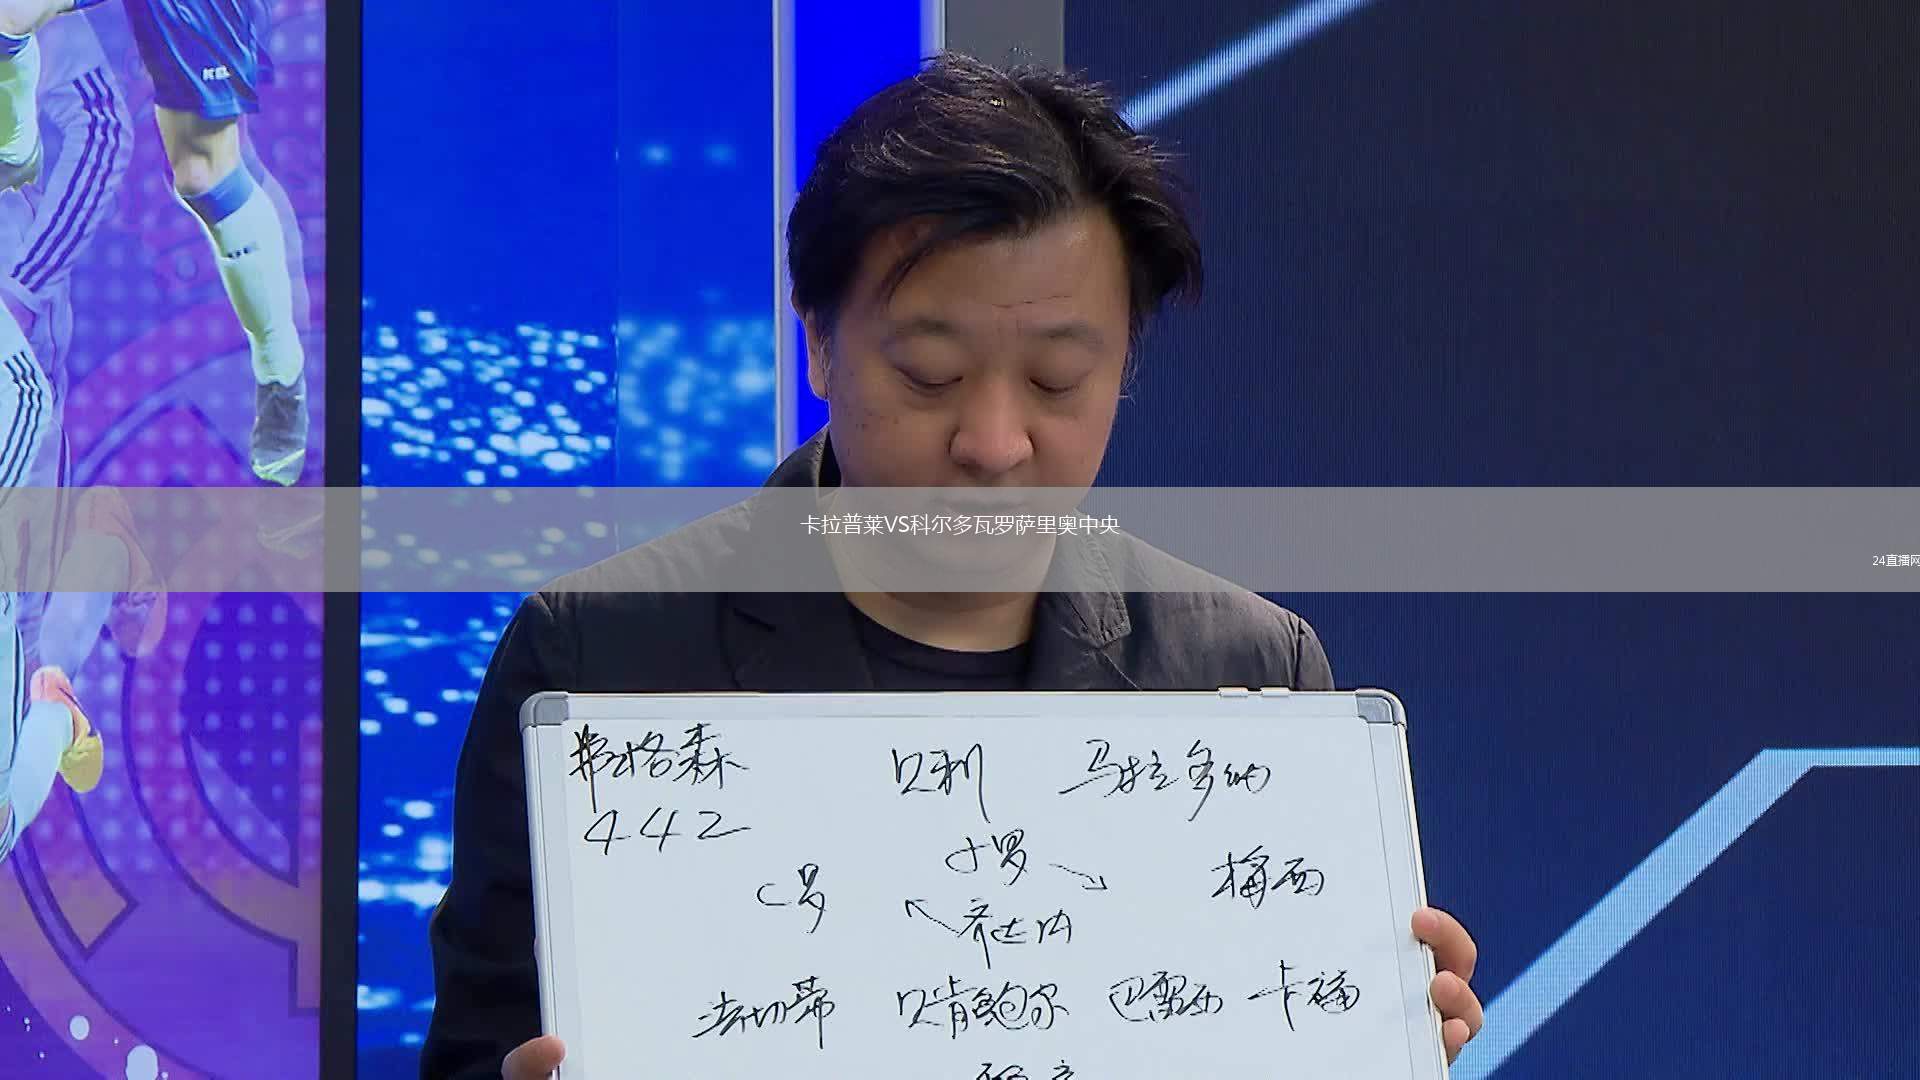 卡拉普莱VS科尔多瓦罗萨里奥中央
24直播网
弗格森 贝利 马拉多纳
442
小罗
C罗 梅西
齐达内
法切蒂 贝肯鲍尔 巴雷西 卡福